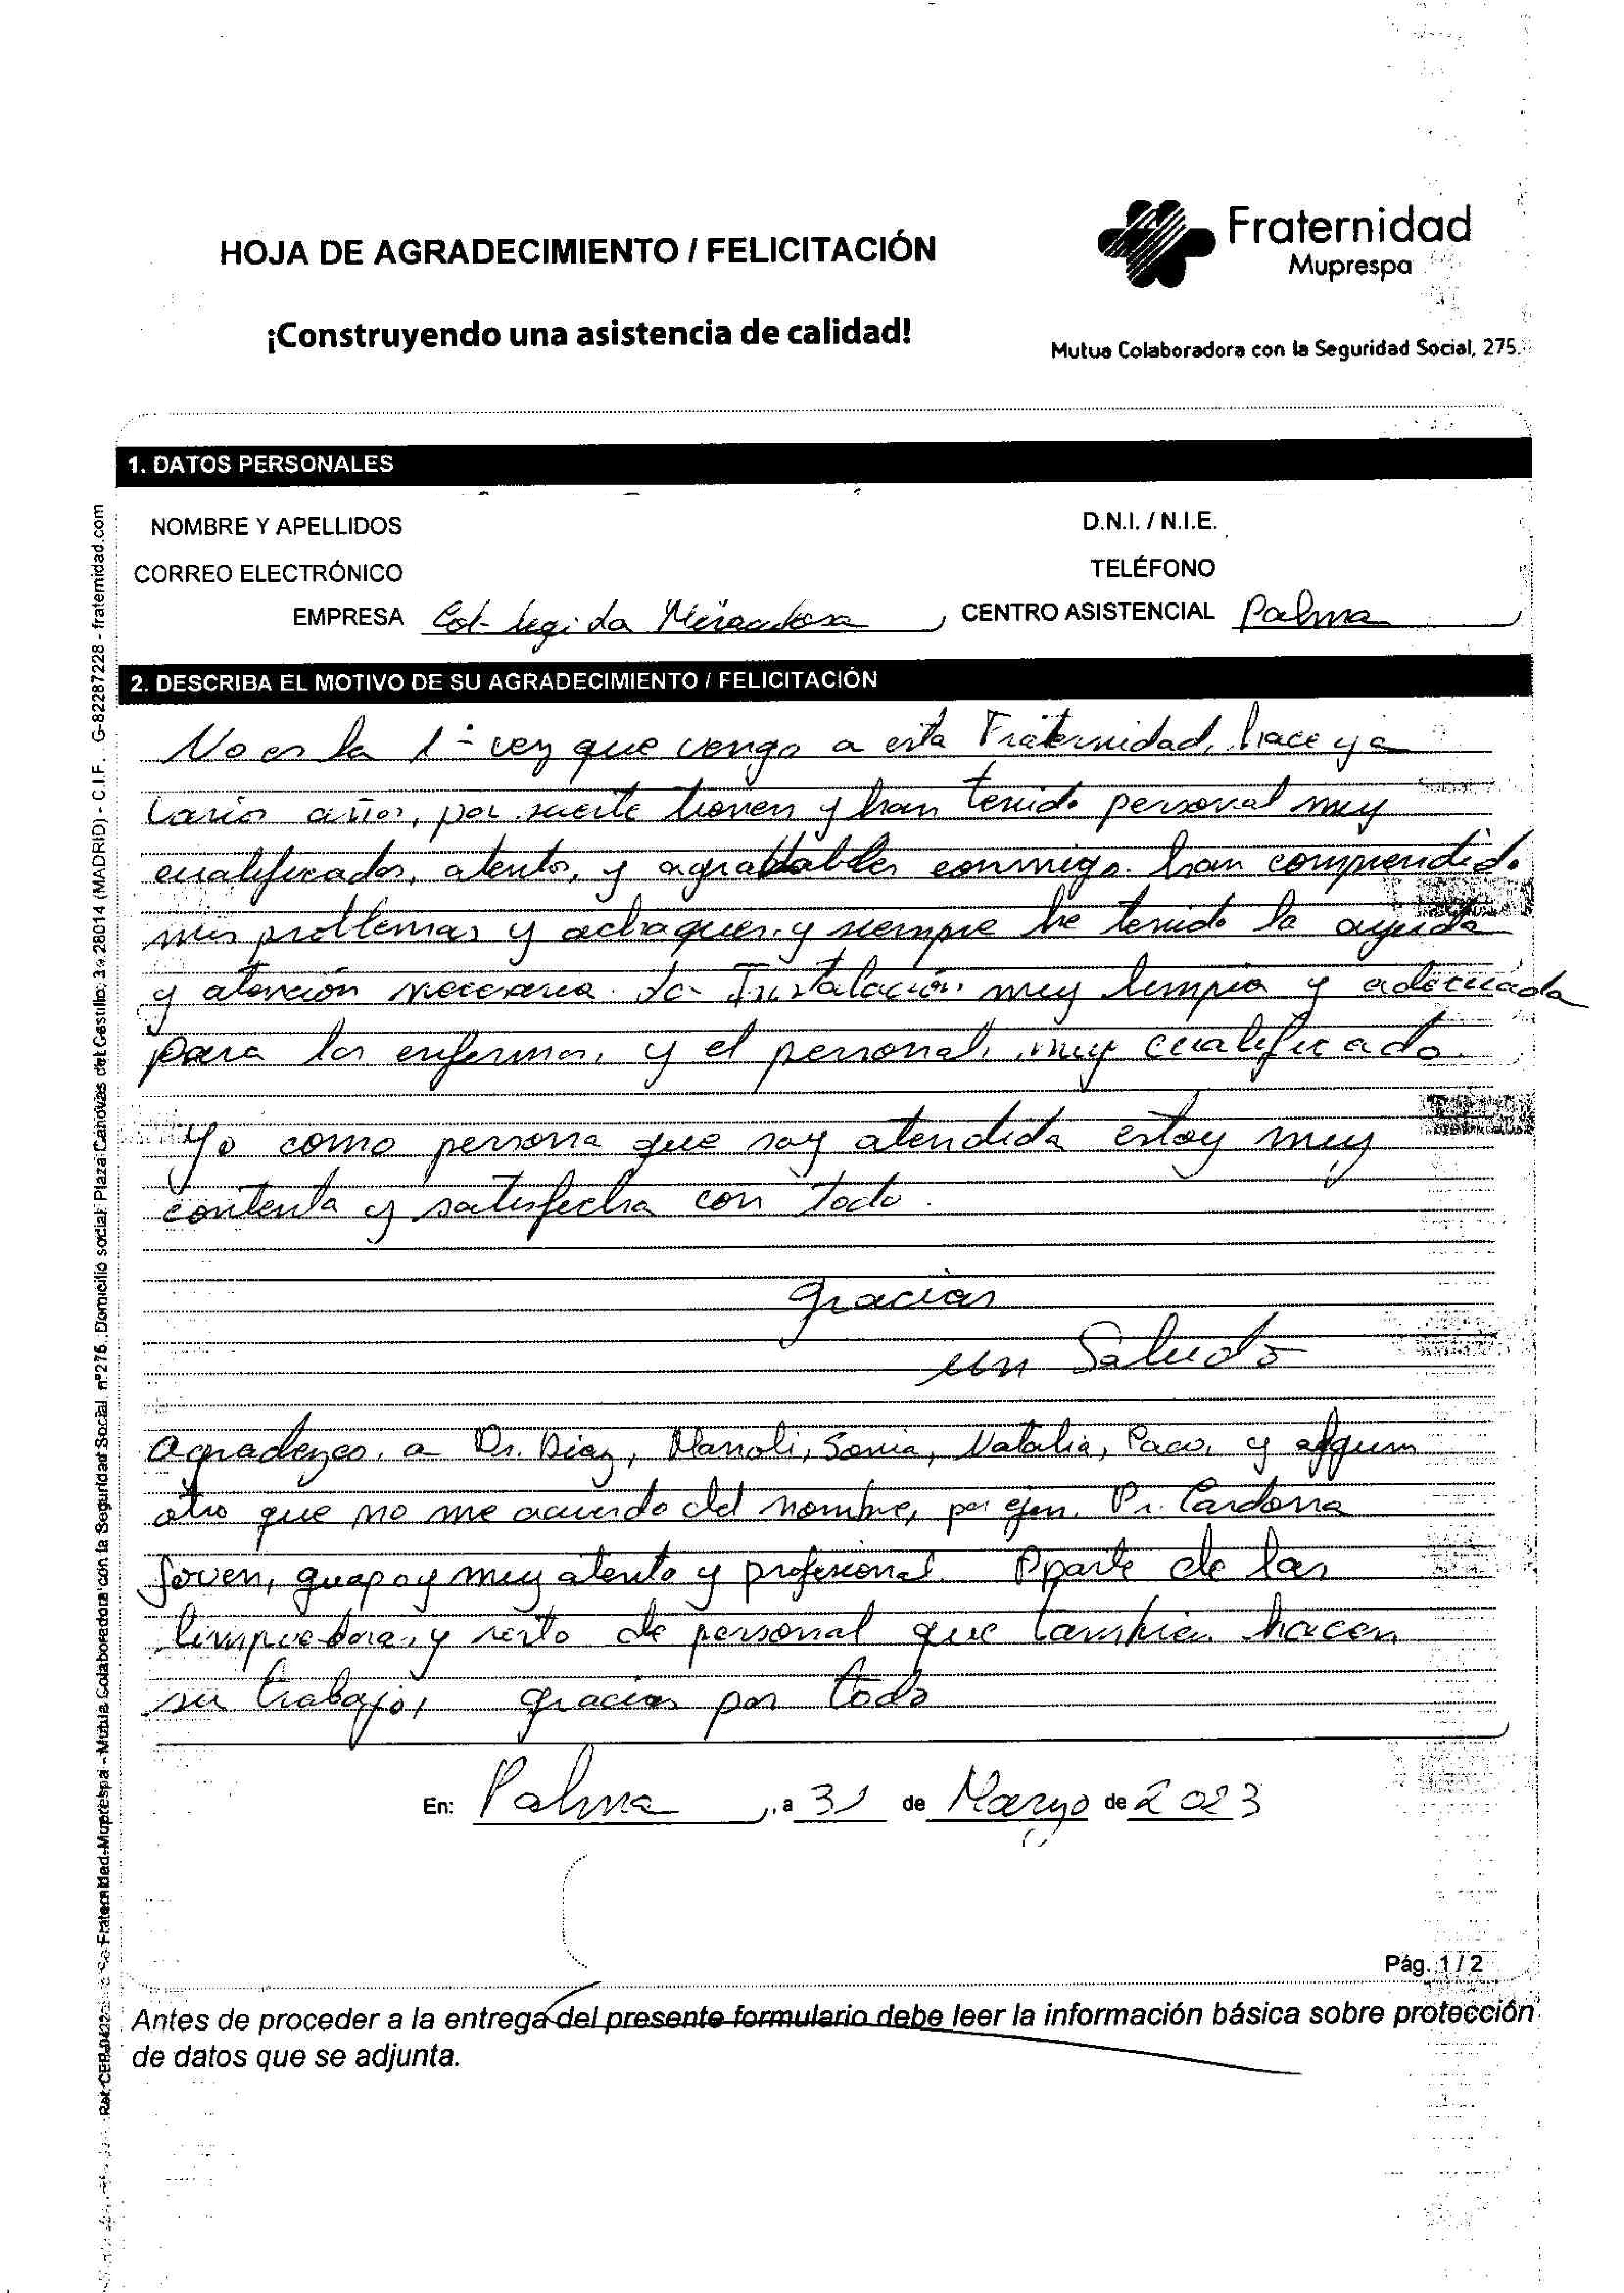 Fraternidad
Muprespa
HOJA DE AGRADECIMIENTO / FELICITACIÓN
¡Construyendo una asistencia de calidad!
Mutua Colaboradora con la Seguridad Social, 275.
1. DATOS PERSONALES
NOMBRE Y APELLIDOS
D.N.I. / N.I.E.
CORREO ELECTRÓNICO
TELÉFONO
EMPRESA Col-legi da CENTRO ASISTENCIAL Palma
2. DESCRIBA EL MOTIVO DE SU AGRADECIMIENTO / FELICITACIÓN
No es la 1ª vez que vengo a esta Fraternidad, hace ya
varios años, por suerte tienen y han tenido personal muy
cualificados, atentos, y agradables conmigo. han comprendido
mis problemas y achaques. y siempre he tenido la ayuda
y atención necesaria. La Instalación muy limpia y adecuada
para los enfermos, y el personal, muy cualificado.
Yo como persona que soy atendida estoy muy
contenta y satisfecha con todo.
gracias
un Saludo
agradezco, a Dr. Diaz, Manoli, Sonia, Natalia, Paco, y algum
otro que no me acuerdo del nombre, por ejem. Dr. Cardona
joven, guapo y muy atento y profesional. Aparte de las
limpiadoras, y resto de personal que tambien hacen
su trabajo, gracias por todo
En: Palma, a 31 de Marzo de 2023
Pág. 1 / 2
Antes de proceder a la entrega del presente formulario debe leer la información básica sobre protección
de datos que se adjunta.
Fraternidad-Muprespa - Mutua Colaboradora con la Seguridad Social, nº275. Domicilio social: Plaza Cánovas del Castillo, 3 28014 (MADRID) - C.I.F. G-82287228 - fraternidad.com